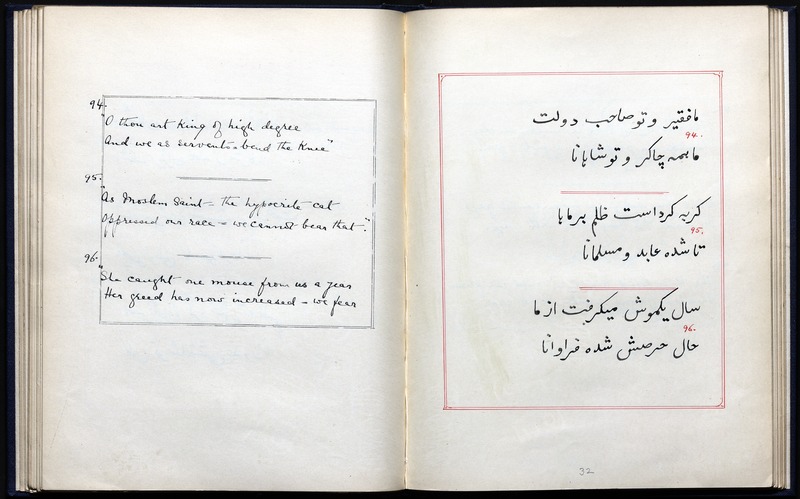 94.
"O thou art King of high degree
And we as servants - bend the Knee"
95.
"As Moslem Saint - the hypocrite cat
Oppressed our race - we cannot bear that".
96.
"She caught one mouse from us a year
Her greed has now increased - we fear
ما فقیر و تو صاحب دولت
94.
ما همه چاکر و تو شاهانا
گربه کرداست ظلم بر ماها
95.
تا شده عابد و مسلمانا
سال یکموش میکرفت از ما
96.
حال حرصش شده فراوانا
32